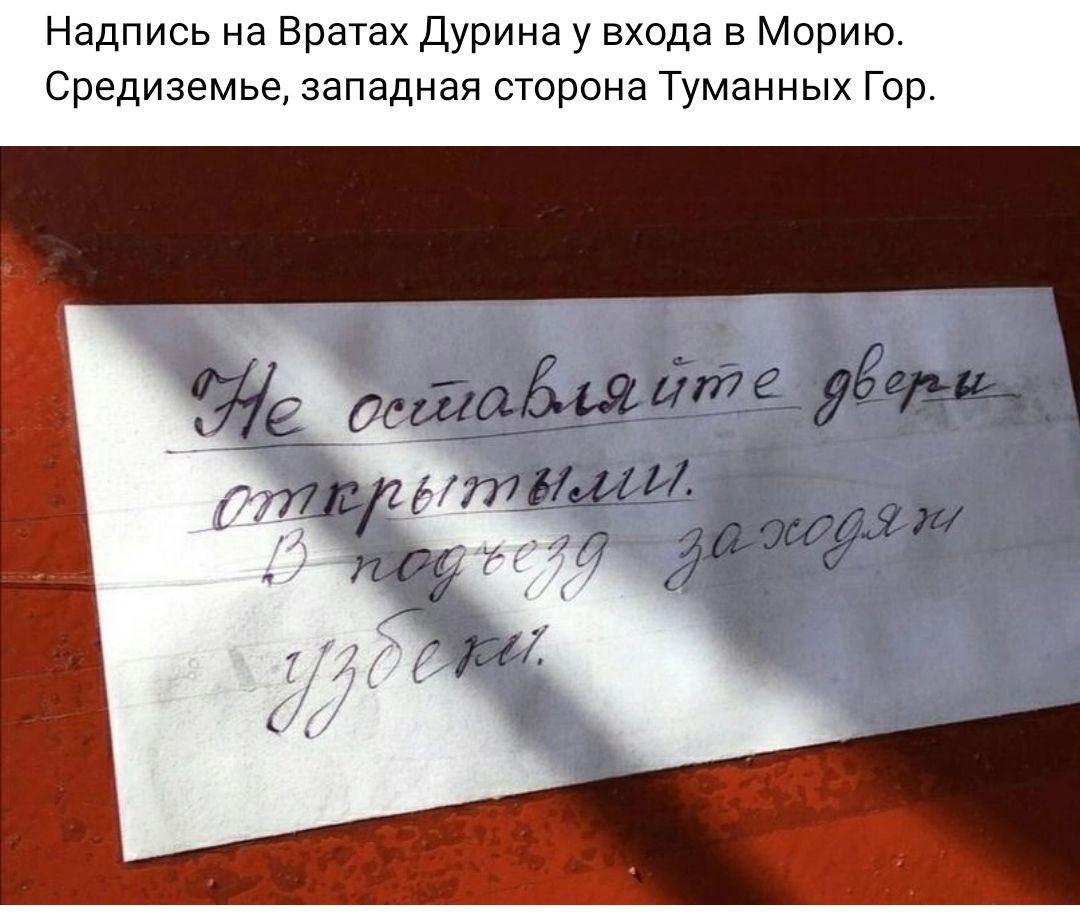 Надпись на Вратах Дурина у входа в Морию.
Средиземье, западная сторона Туманных Гор.
Не оставляйте двери
открытыми.
В подъезд заходят
узбеки.